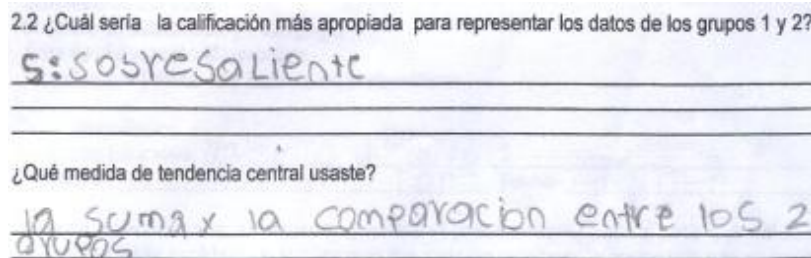 2.2 ¿Cuál sería la calificación más apropiada para representar los datos de los grupos 1 y 2?
S: SobreSaLiente
¿Qué medida de tendencia central usaste?
la suma y la comparacion entre los 2
grupos